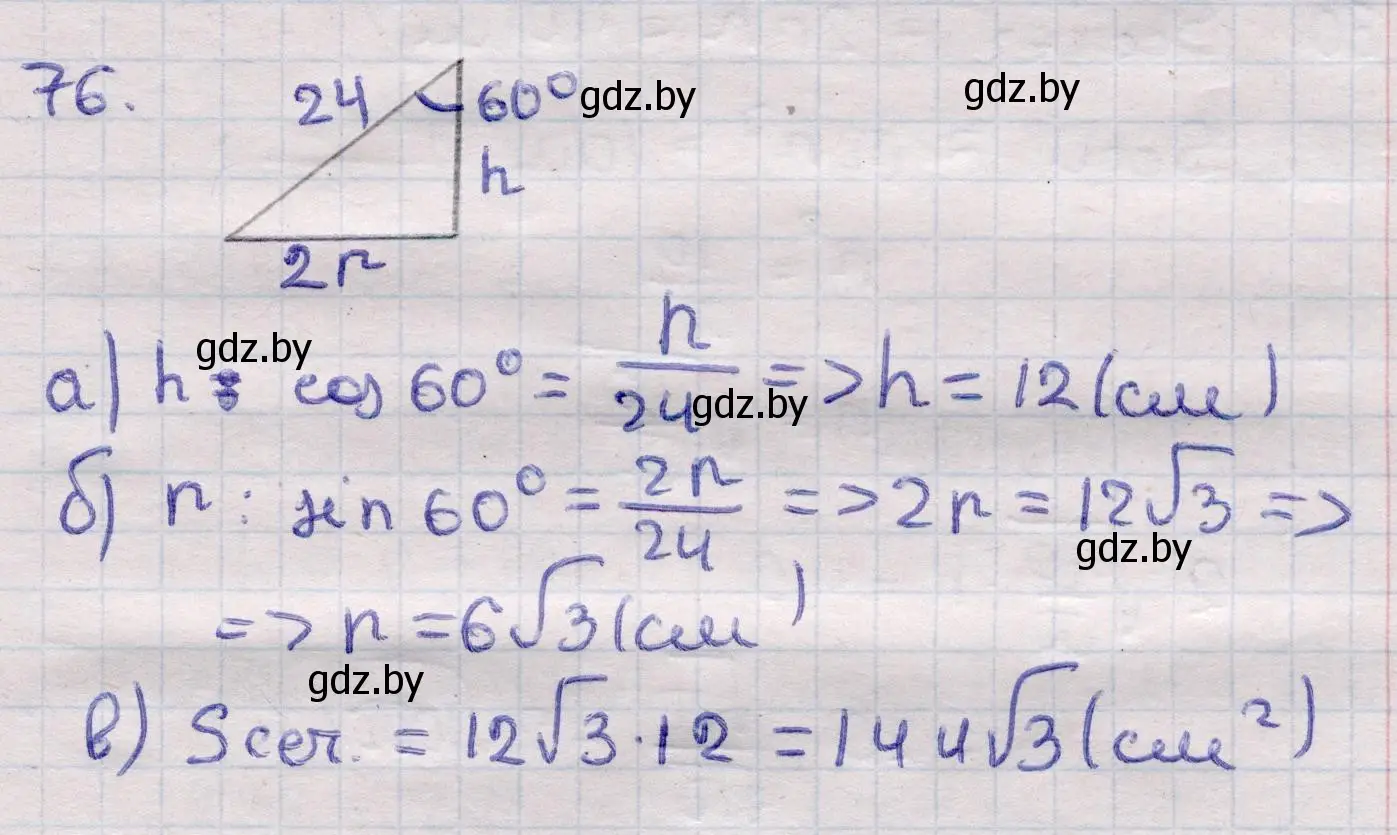 76. 24 60° gdz.by gdz.by
h
2r
gdz.by
а) h : cos 60° = h/24 => h = 12 (см)
gdz.by
б) r : sin 60° = 2r/24 => 2r = 12√3 =>
gdz.by
=> r = 6√3 (см)
gdz.by
в) Sсеч. = 12√3 · 12 = 144√3 (см²)